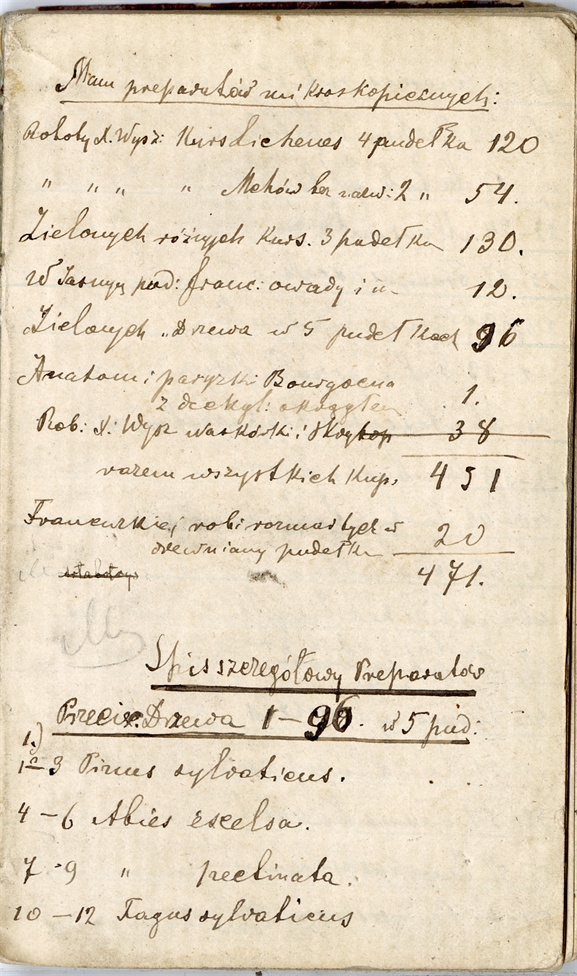 Mam preparatów mikroskopicznych:
Roboty X. Wysz: Kurs Lichenes 4 pudełka 120
„ „ „ „ Mchów bez nazw: 2 „ 54.
Zielonych różnych Kurs. 3 pudełka 130.
W Jasnym pud: franc: owady i n- 12.
Zielonych „Drzewa w 5 pudełkach 96
Anatom: paryzki Bourgoena
z 1.
Rob: X. Wysz 38
razem wszystkich Kup. 451
Francuzkiej robi rozmaitych w 20
drewniany pudełku
471.
Spis szczegółowy Preparatów
Przecię. Drzewa 1 – 96. w 5 pud:
1.)
1 – 3 Pinus sylvaticus.
4 – 6 Abies excelsa.
7 - 9 „ pectinata.
10 – 12 Fagus sylvaticus